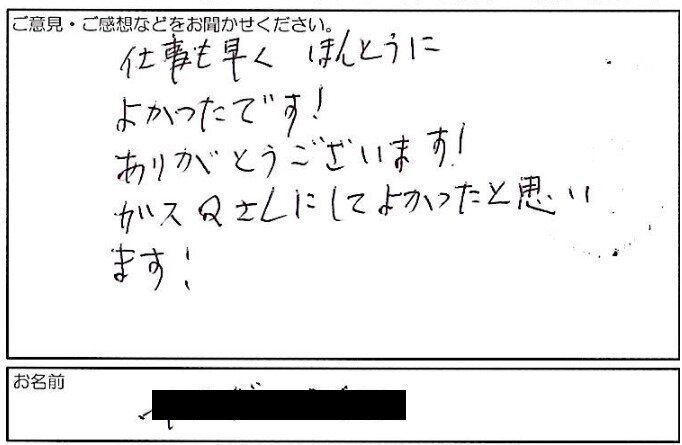 ご意見・ご感想などをお聞かせください。
仕事も早く ほんとうに
よかったです!
ありがとうございます!
ガスQさんにしてよかったと思い
ます!
お名前